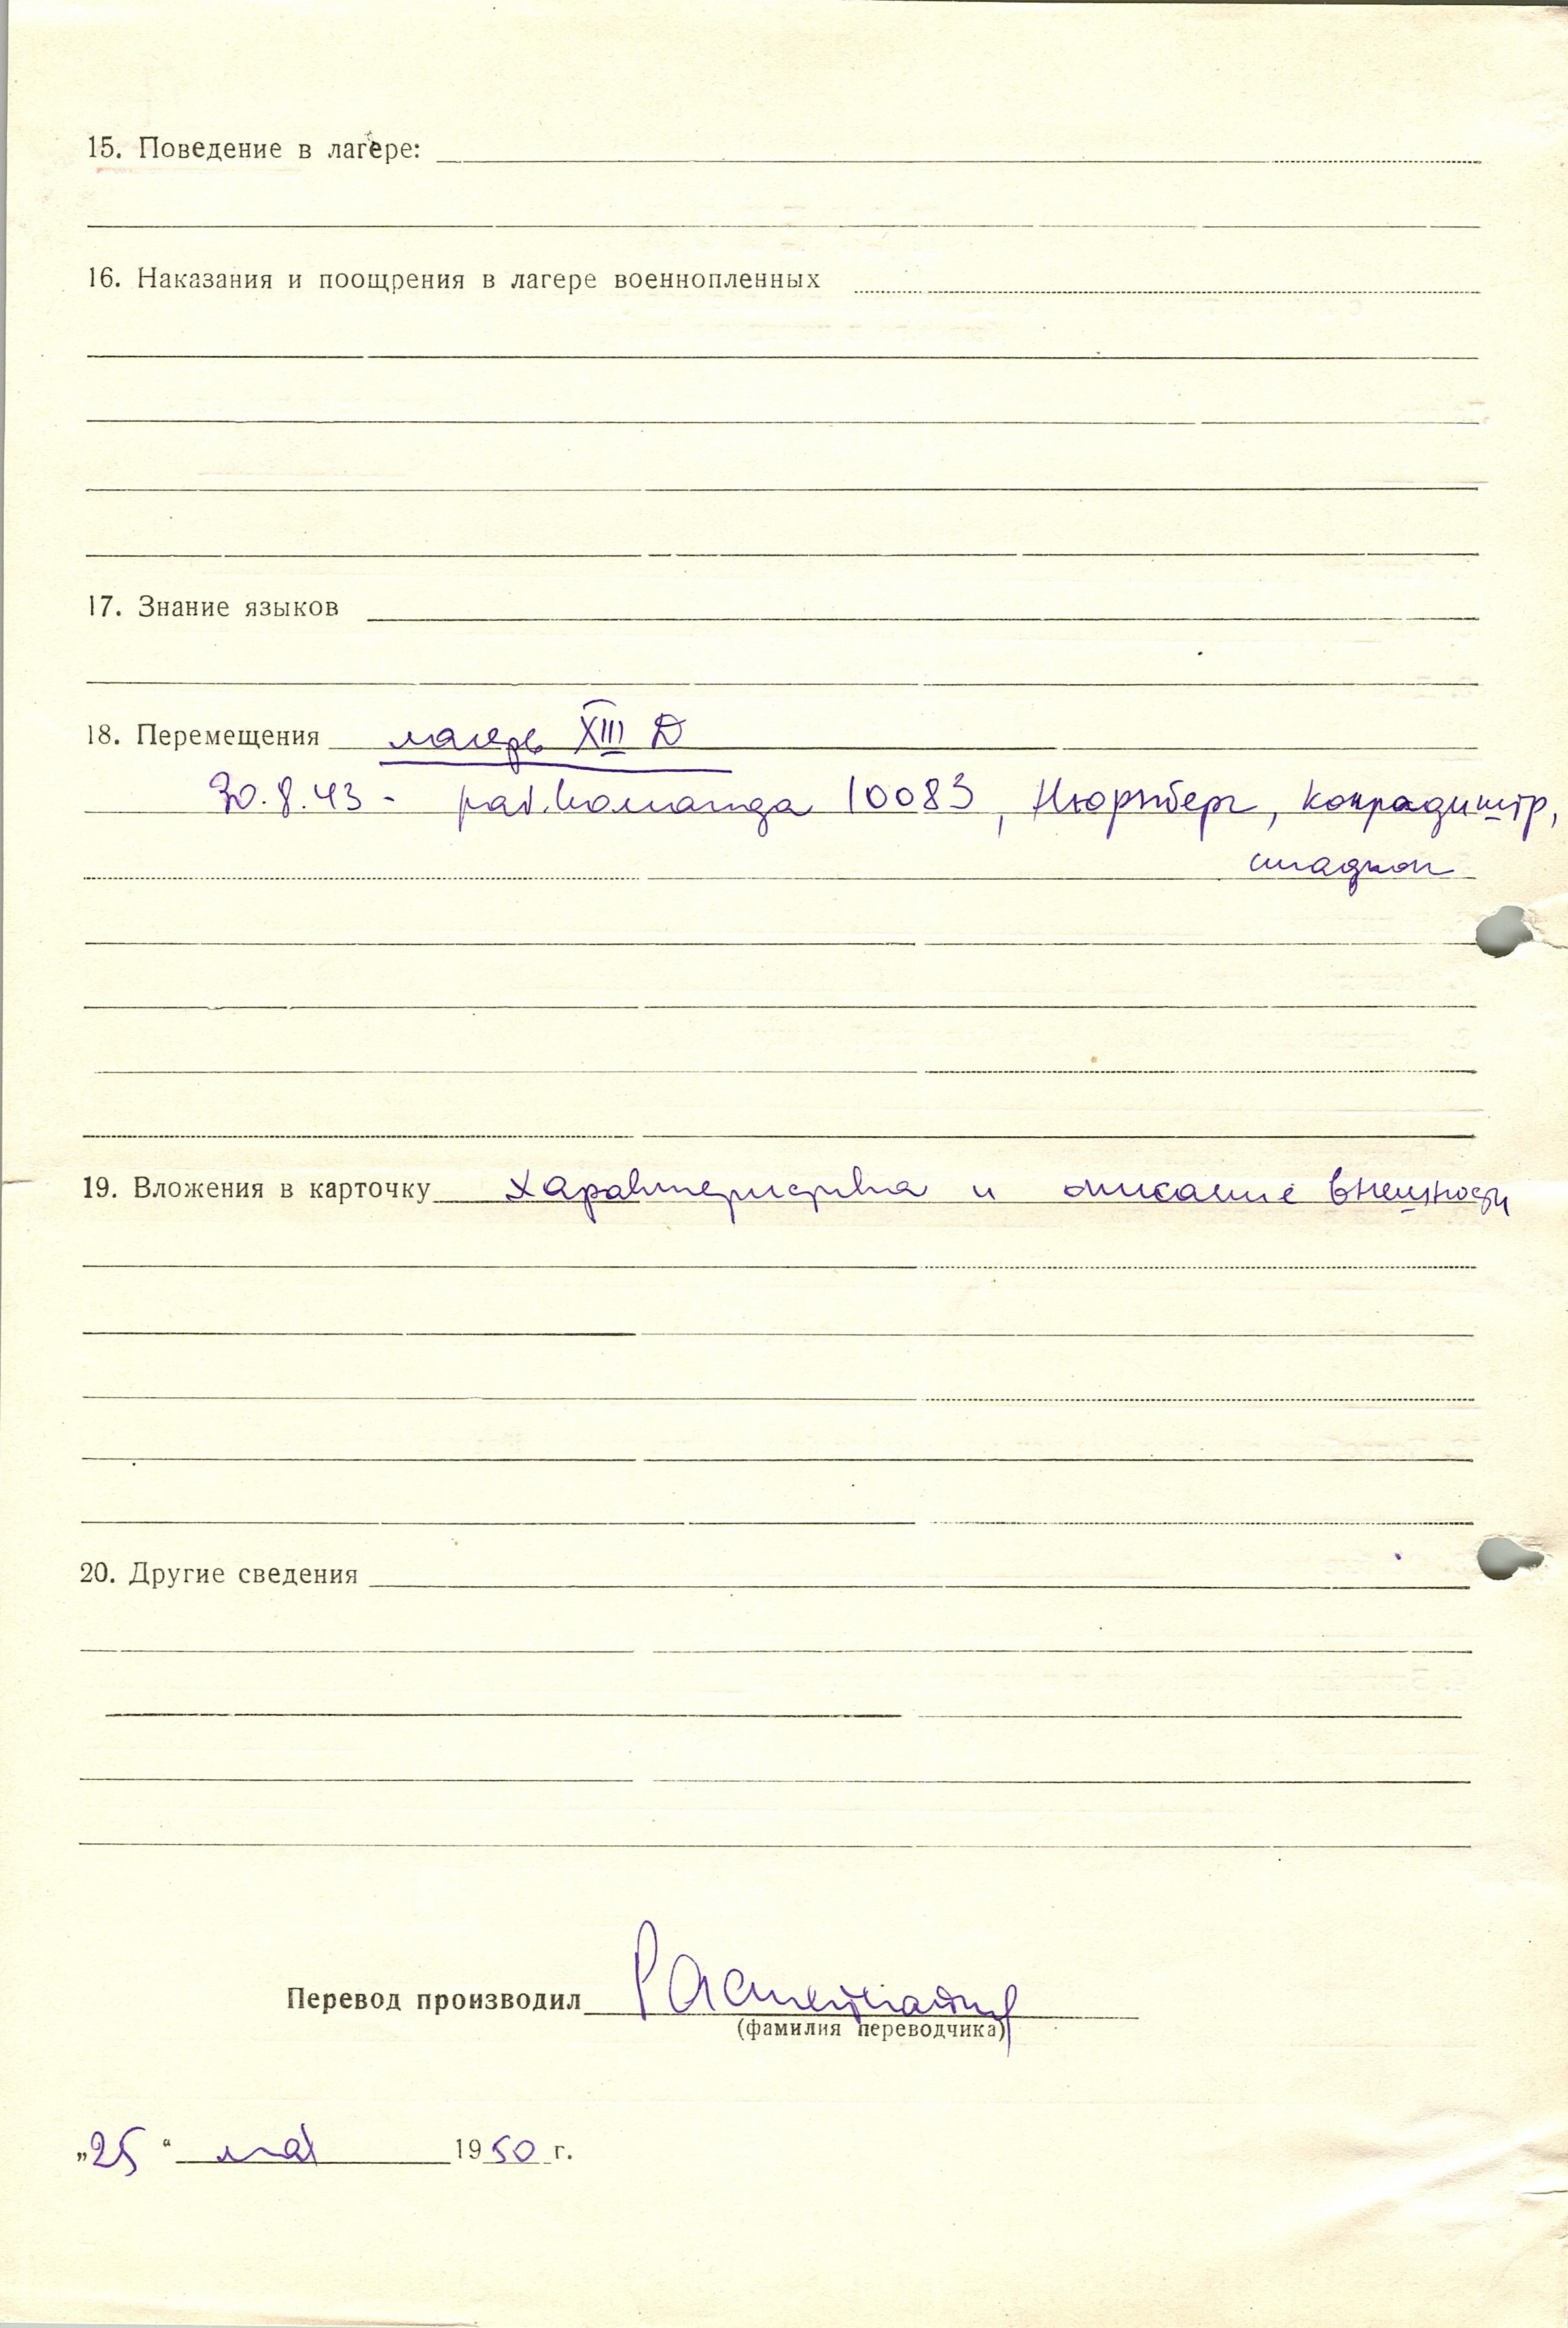 15. Поведение в лагере:
16. Наказания и поощрения в лагере военнопленных
17. Знание языков
18. Перемещения лагерь XIII D
30.8.43 - раб.команда 10083, Нюрнберг, Конрадиштр,
19. Вложения в карточку характеристика и описание внешности
20. Другие сведения
Перевод производил
(фамилия переводчика)
„25“ мая 1950 г.